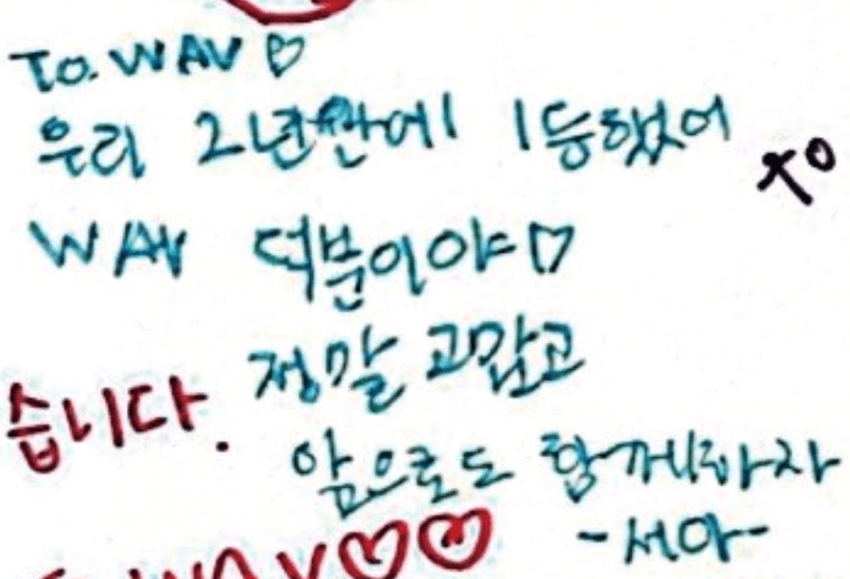 To. WAV ♡
우리 2년만에 1등했어
To
WAV 덕분이야♡
정말 고맙고
습니다.
앞으로도 함께하자
-서아-
To. WAV♡♡